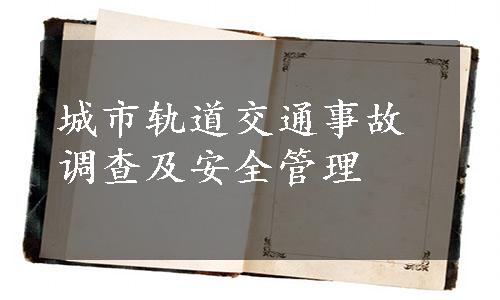 城市轨道交通事故
调查及安全管理